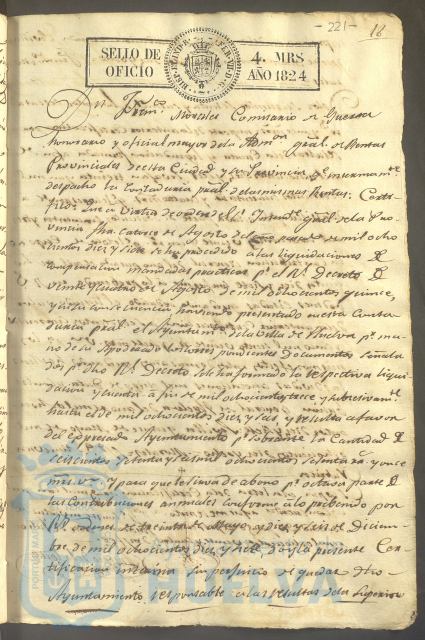 - 221 -
16
SELLO DE OFICIO
HISP. ET IND. R. FER. VII D. G.
4. MRS AÑO 1824
Dn. Franco. Morales Comisario de Guerra
honorario y oficial mayor de la Admon. gral. de Rentas
Provinciales de esta Ciudad y su Provincia é interinamte.
despacho la Contaduria gral. de las mismas Rentas: Certi-
fico: Que a virtud de orden del Sr. Intendte. gral. de la Pro-
vincia fha. catorce de Agosto del año pasado de mil ocho
cientos diez y siete se ha procedido a las liquidaciones de
compensacion mandadas practicar pr. el Rl. Decreto de
veinte y cuatro de Agosto de mil ochocientos quince,
y en su consecuencia haviendo presentado en esta Conta-
duria gral. el Ayuntamto. de la Villa de Huelva pr. ma
no de su Apoderado los correspondientes Documentos señala
dos pr. dho Rl. Decreto, se ha formado la respectiva liqui-
dacion y cuenta a fin de mil ochocientos trece y subcesivamte.
hasta el de mil ochocientos diez y seis, y resulta a favor
del expresado Ayuntamiento pr. sobrante la Cantidad de
seiscientos setenta y seis mil ochocientos setenta rs. y once
mrs. vn. Y para que le sirva de abono pr. octava parte de
las Contribuciones annales conforme a lo prebenido por
Rs. ordenes de treinta de Mayo y diez y seis de Diciem-
bre de mil ochocientos diez y siete, doy la presente Cer-
tificacion interina sin perjuicio de quedar dho
Ayuntamiento responsable a las resultas de la superior
PORTUS MARIS
HUELVA